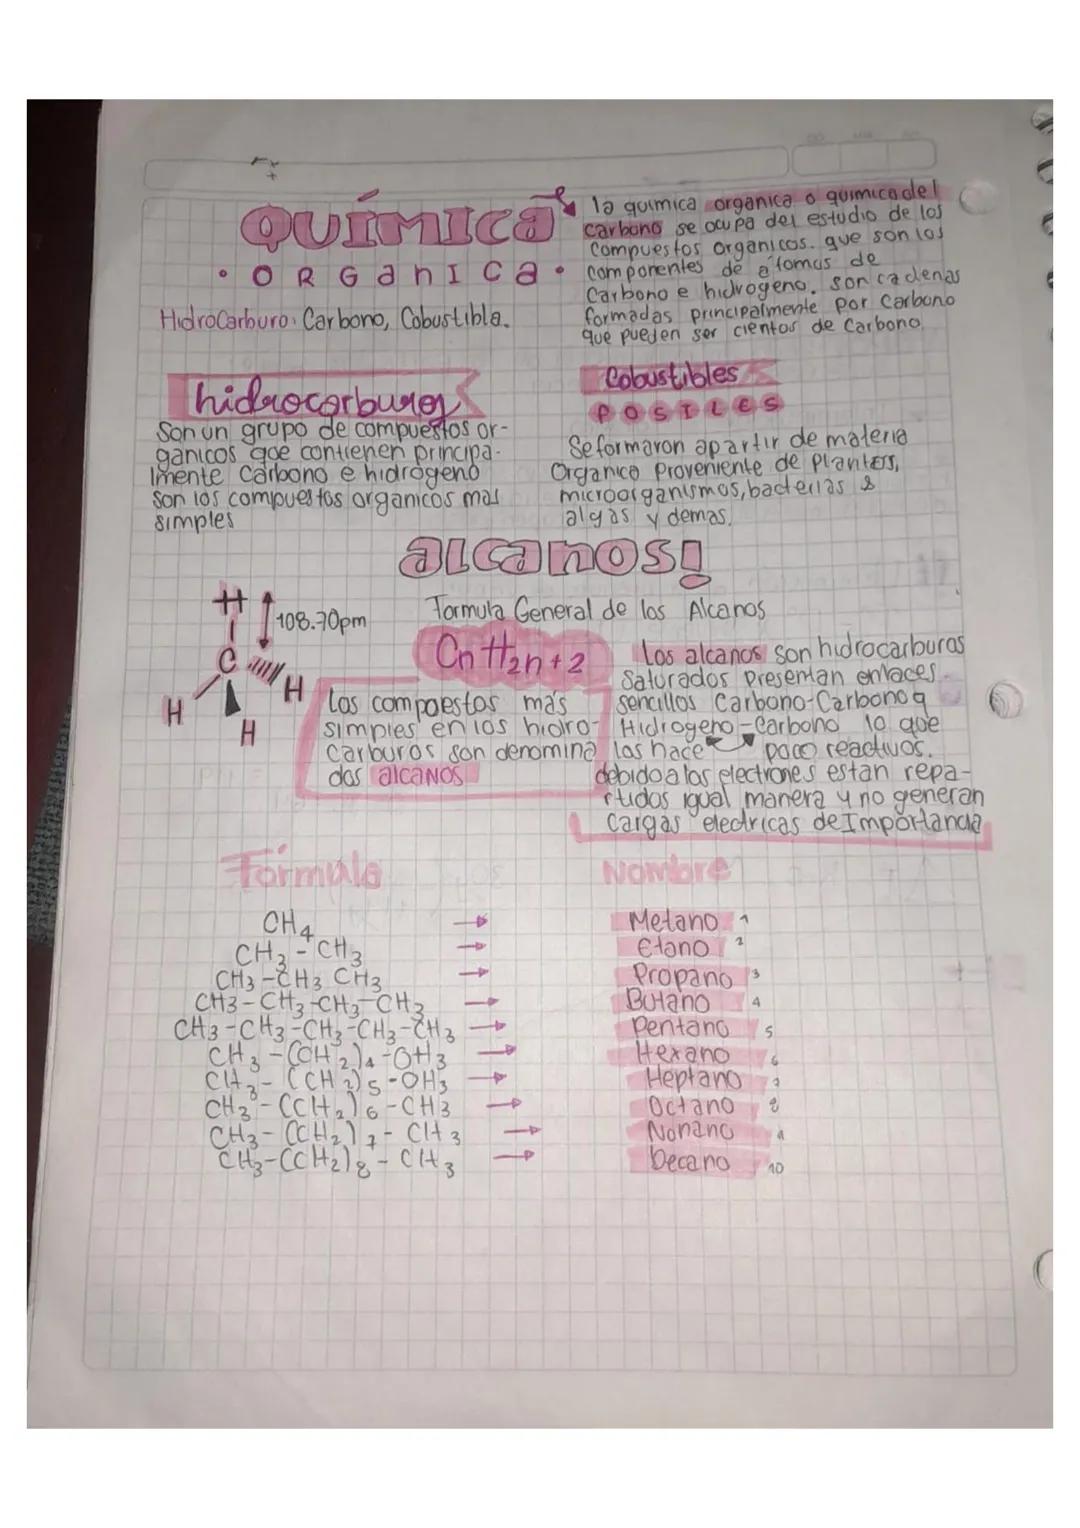 QUÍMICA
• ORGanICa •
la quimica organica o quimica del
carbono se ocupa del estudio de los
Compuestos organicos. que son los
componentes de atomos de
Carbono e hidrogeno. son cadenas
formadas principalmente por Carbono
que pueden ser cientos de Carbono.
HidroCarburo: Carbono, Cobustibla.
hidrocarburos
Son un grupo de compuestos or-
ganicos que contienen principa-
lmente Carbono e hidrógeno
son los compuestos organicos mas
simples
Cobustibles
POSILES
Se formaron apartir de materia
Organica Proveniente de Plantas,
microorganismos, bacterias &
algas y demas.
alcanos!
H
108.70pm
C
H
H
H
Formula General de los Alcanos
CnH2n+2
Los compoestos más
simples en los hidro-
Carburos son denomina
dos alcanos
Los alcanos son hidrocarburos
Saturados Presentan enlaces
sencillos Carbono-Carbono q
Hidrogeno-Carbono lo que
las hace poco reactivos.
debido a los electrones estan repa-
rtidos igual manera y no generan
Cargas electricas de Importancia
Fórmula
Nombre
CH4 → Metano 1
CH3-CH3 → Etano 2
CH3-CH3 CH3 → Propano 3
CH3-CH3-CH3-CH3 → Butano 4
CH3-CH3-CH3-CH3-CH3 → Pentano 5
CH3-(CH2)4-OH3 → Hexano 6
CH3-(CH2)5-OH3 → Heptano 7
CH3-(CH2)6-CH3 → Octano 8
CH3-(CH2)7-CH3 → Nonano 9
CH3-(CH2)8-CH3 → Decano 10